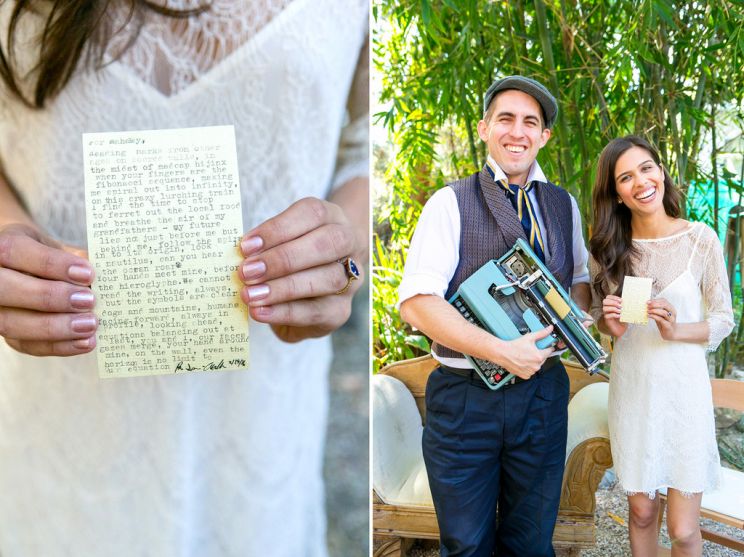 For
leaving marks from other
in
the midst of madcap hijinx
when your fingers are the
fibonacci sequence, making
me spiral out into infinity,
on this crazy lurching train
i find the time to stop
to ferret out the local food
and breathe the air of my
grandfathers - my future
lies not just before me but
behind me, follow the
to its origin,
a nautilus, can you hear
the ocean roar?
four hands meet mine, before
the hieroglyphs. We cannot
read the writing, always
but the symbols are clear
dogs and mountains, humans
facing forward always in
profile, looking ahead,
east, you and i, our
gazes merge, your hand and
mine, on the wall, even the
horizon is no limit to
our equation